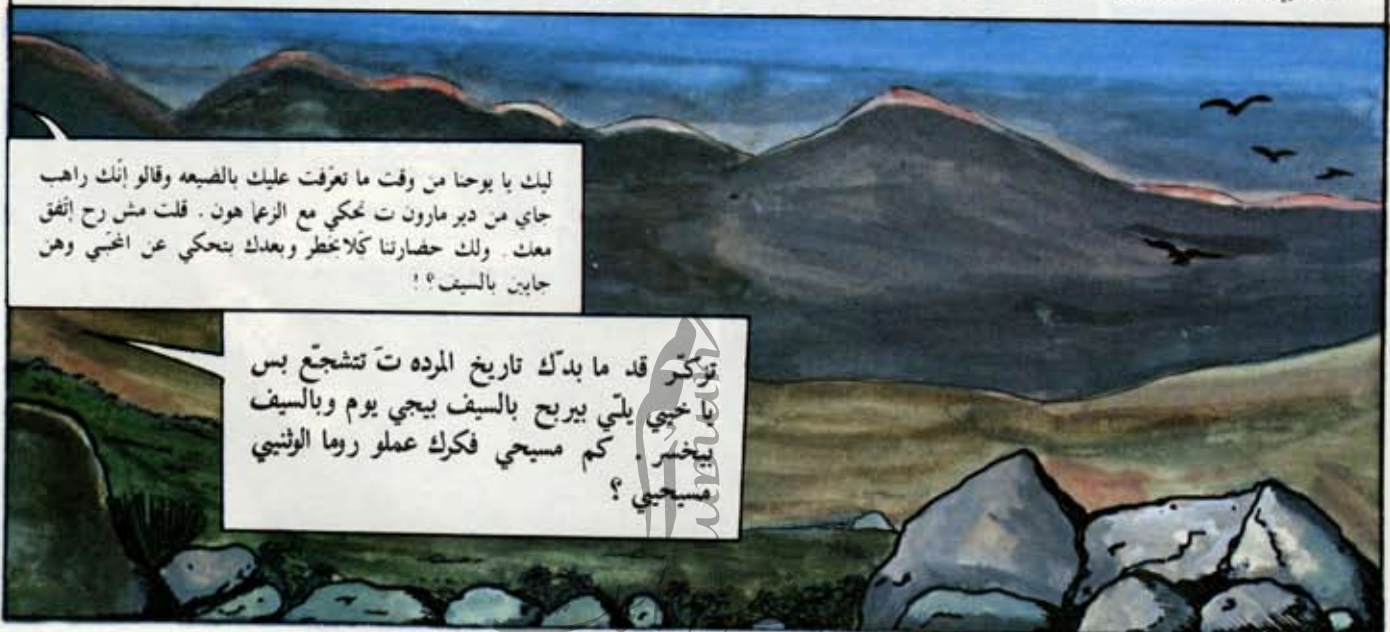 ليك يا يوحنا من وقت ما تعرّفت عليك بالضيعه وقالو إنّك راهب
جاي من دير مارون ت تحكي مع الزعما هون . قلت مش رح اتّفق
معك . ولك حضارتنا كّلا بخطر وبعدك بتحكي عن المحبّي وهن
جايين بالسيف ؟ !
تزكّر قد ما بدّك تاريخ المرده تَ تتشجّع بس
يا خيي يلّي بيربح بالسيف بيجي يوم وبالسيف
بيخسر . كم مسيحي فكرك عملو روما الوثنيي
مسيحيي ؟